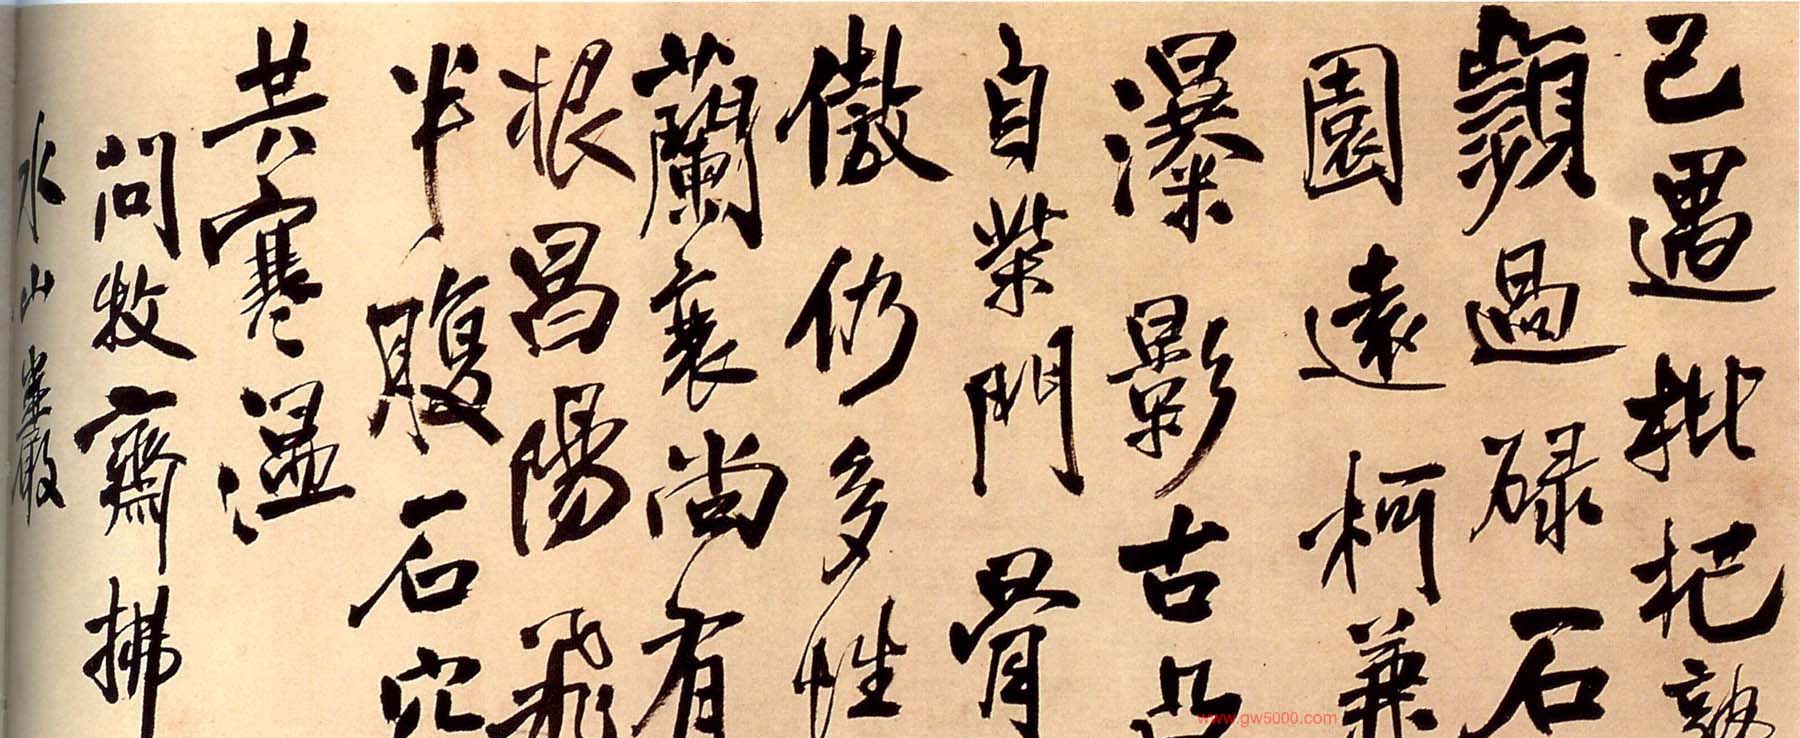 已遇枇杷熟
顡過碌石
園遠柯兼
瀑影古凸
自柴門骨
傲仍多性
蘭衰尚有
根昌陽飛
半腹石穴
共寒温
問牧齋拂
水山巖
www.gw5000.com